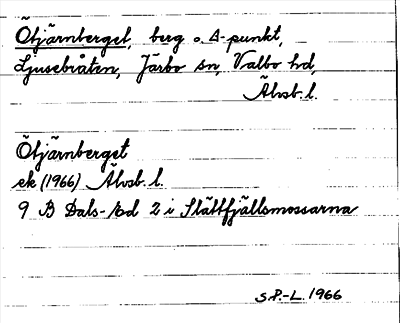 Ötjärnberget, berg o. Δ-punkt,
Ljusebråten, Järbo sn, Valbo hd,
Älvsb. l.
Ötjärnberget
ek (1966) Älvsb. l.
9 B Dals-Ed 2 i Slättfjällsmossarna
S.P.-L. 1966